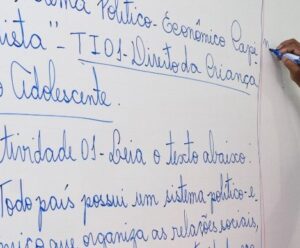 tema Político-Econômico Capi-
lista" - TI01 - Direito da Criança
o Adolescente.
tividade 01 - Leia o texto abaixo.
Todo país possui um sistema político-e-
mico que organiza as relações sociais,